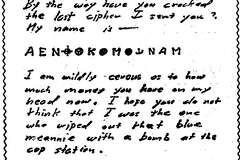 By the way have you cracked
the last cipher I sent you?
My name is —
A E N ⌖ ⊕ K ⊕ M ⊕ ⅃ N A M
I am mildly cerous as to how
much money you have on my
head now. I hope you do not
think that I was the one
who wiped out that blue
meannie with a bomb at the
cop station.